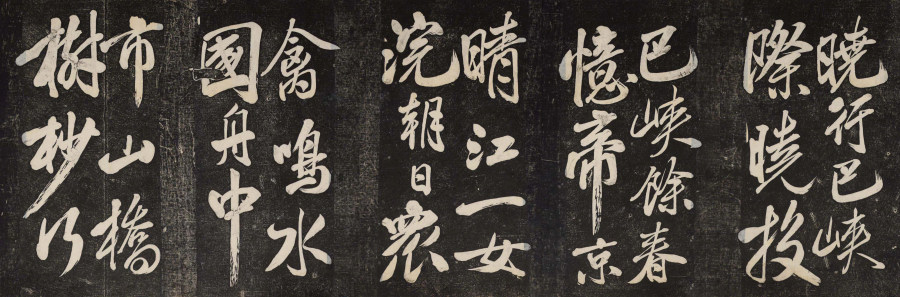 曉行巴峽
際曉投
巴峽餘春
憶帝京
晴江一女
浣朝日衆
禽鳴水
國舟中
市山橋
樹杪行